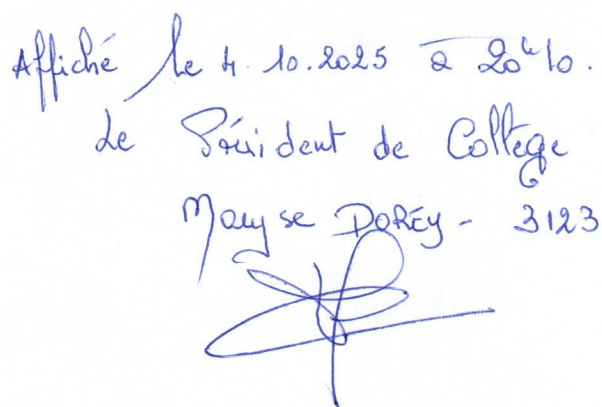 Affiché le 4.10.2025 à 20h10.
Le Président de Collège
Maryse DOREY - 3123